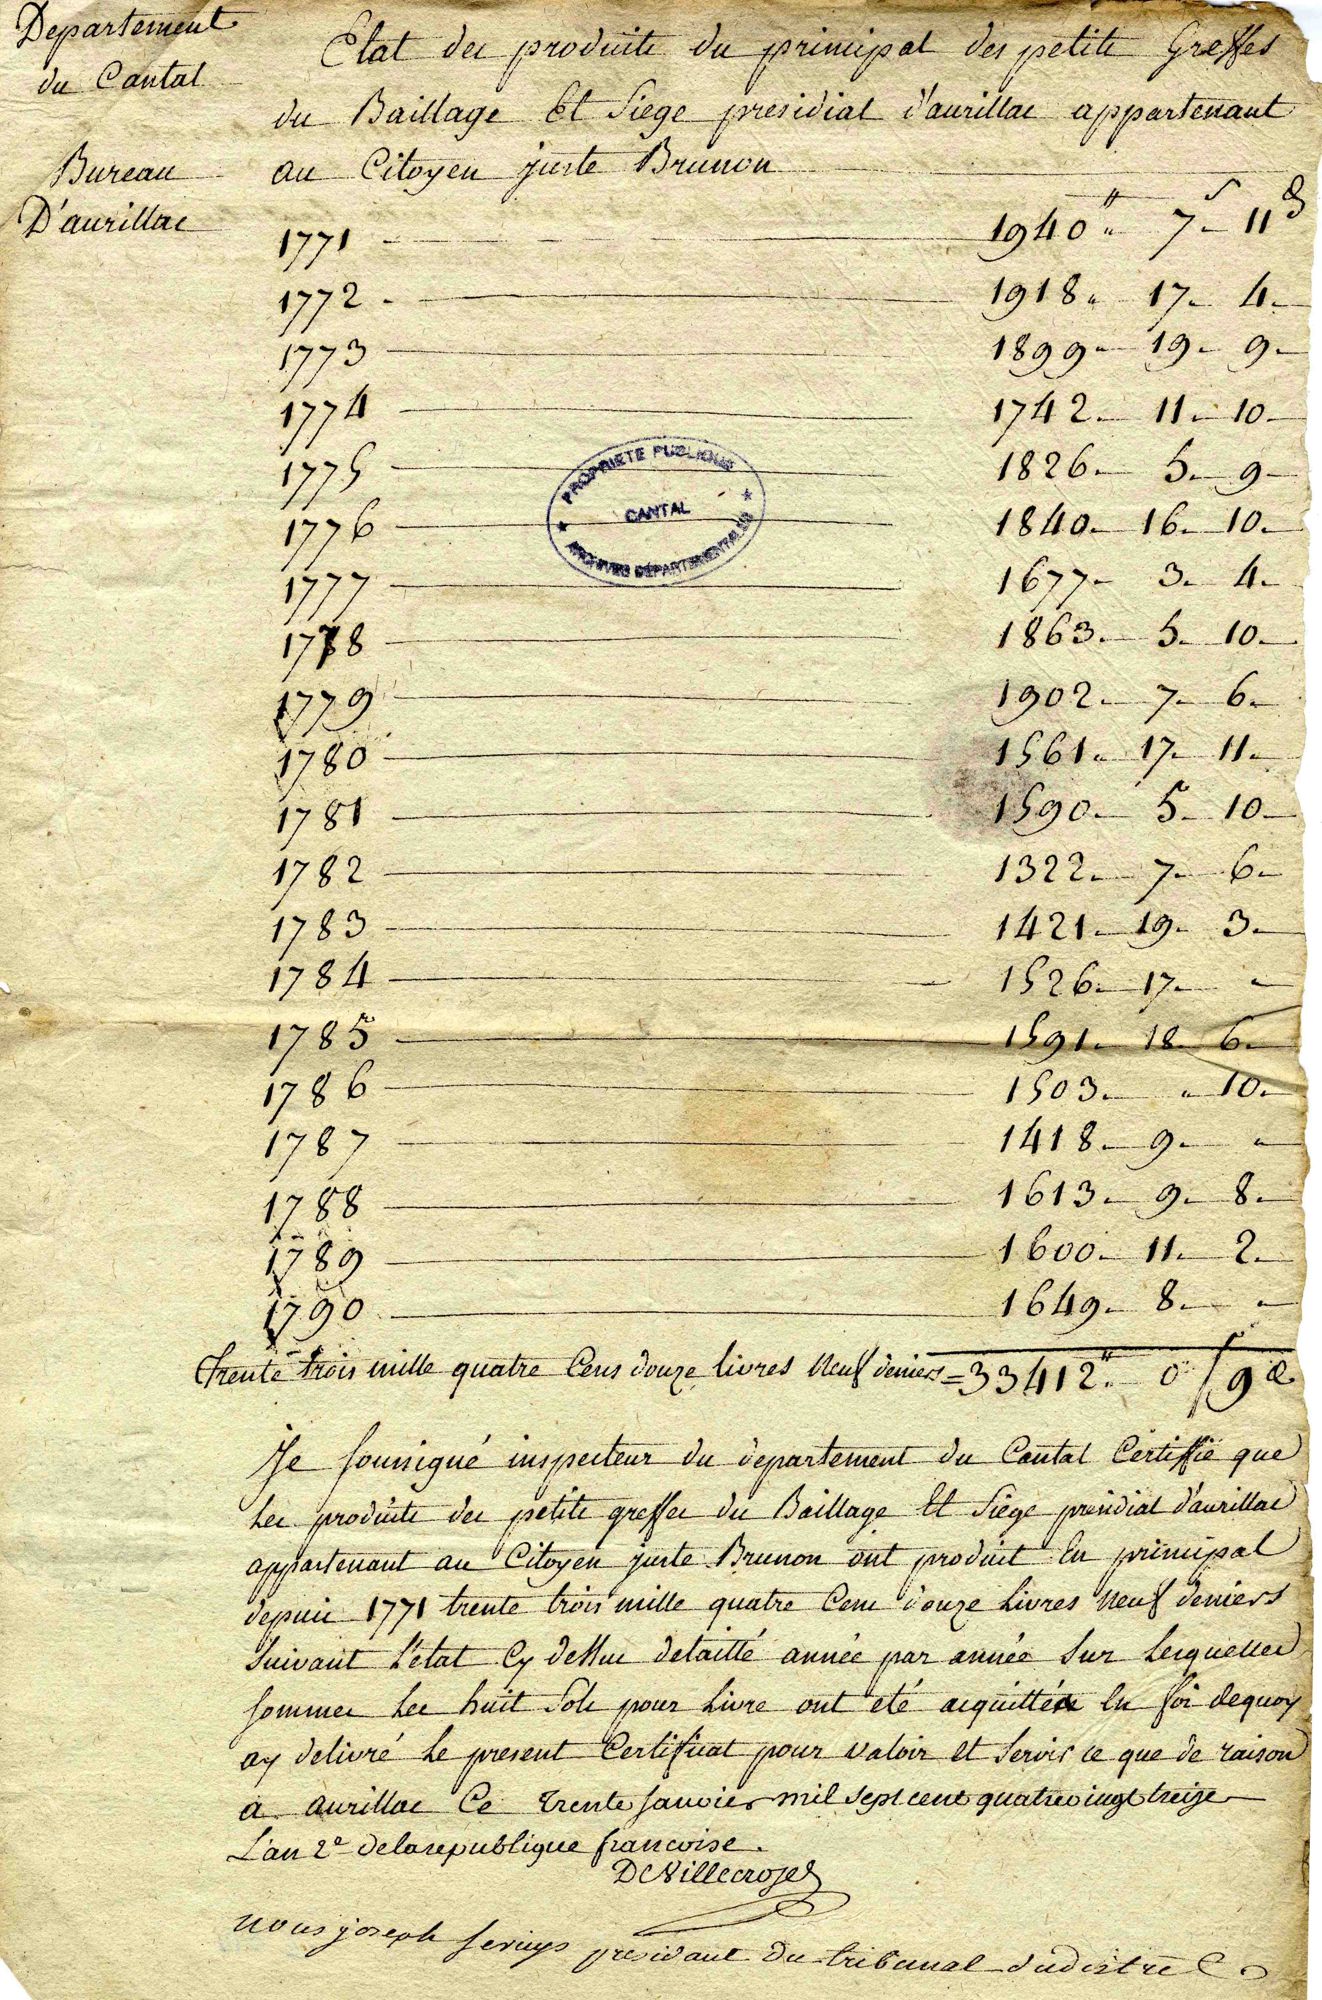 Departement
du Cantal
Bureau
D'aurillac
Etat des produits du principal des petits Greffes
du Baillage Et Siege presidial d'aurillac appartenant
au Citoyen juste Brunon
1771 - 1940" 7s 11d
1772 - 1918 17 4
1773 - 1899 19 9
1774 - 1742 11 10
1775 - 1826 5 9
1776 - 1840 16 10
1777 - 1677 3 4
1778 - 1863 5 10
1779 - 1902 7 6
1780 - 1561 17 11
1781 - 1590 5 10
1782 - 1322 7 6
1783 - 1421 19 3
1784 - 1526 17 "
1785 - 1591 18 6
1786 - 1503 " 10
1787 - 1418 9 "
1788 - 1613 9 8
1789 - 1600 11 2
1790 - 1649 8 "
Trente trois mille quatre Cens douze livres neuf deniers = 33412" 0s 9d
PROPRIETE PUBLIQUE
CANTAL
ARCHIVES DÉPARTEMENTALES
Je soussigné inspecteur du departement du Cantal Certiffie que
Les produits des petits greffes du Baillage Et Siège presidial d'aurillac
appartenant au Citoyen juste Brunon ont produit En principal
depuis 1771 trente trois mille quatre Cens douze Livres neuf deniers
Suivant l'état Cy dessus detaillé année par année Sur Lesquelles
sommes Les huit Sols pour Livre ont eté acquittés En foi dequoy
ay delivré Le present Certificat pour valoir et Servir ce que de raison
a aurillac Ce trente Janvier mil sept cent quatrevingt treize
L'an 2e delarepublique francoise.
DeVillecroze
nous joseph president du tribunal du district